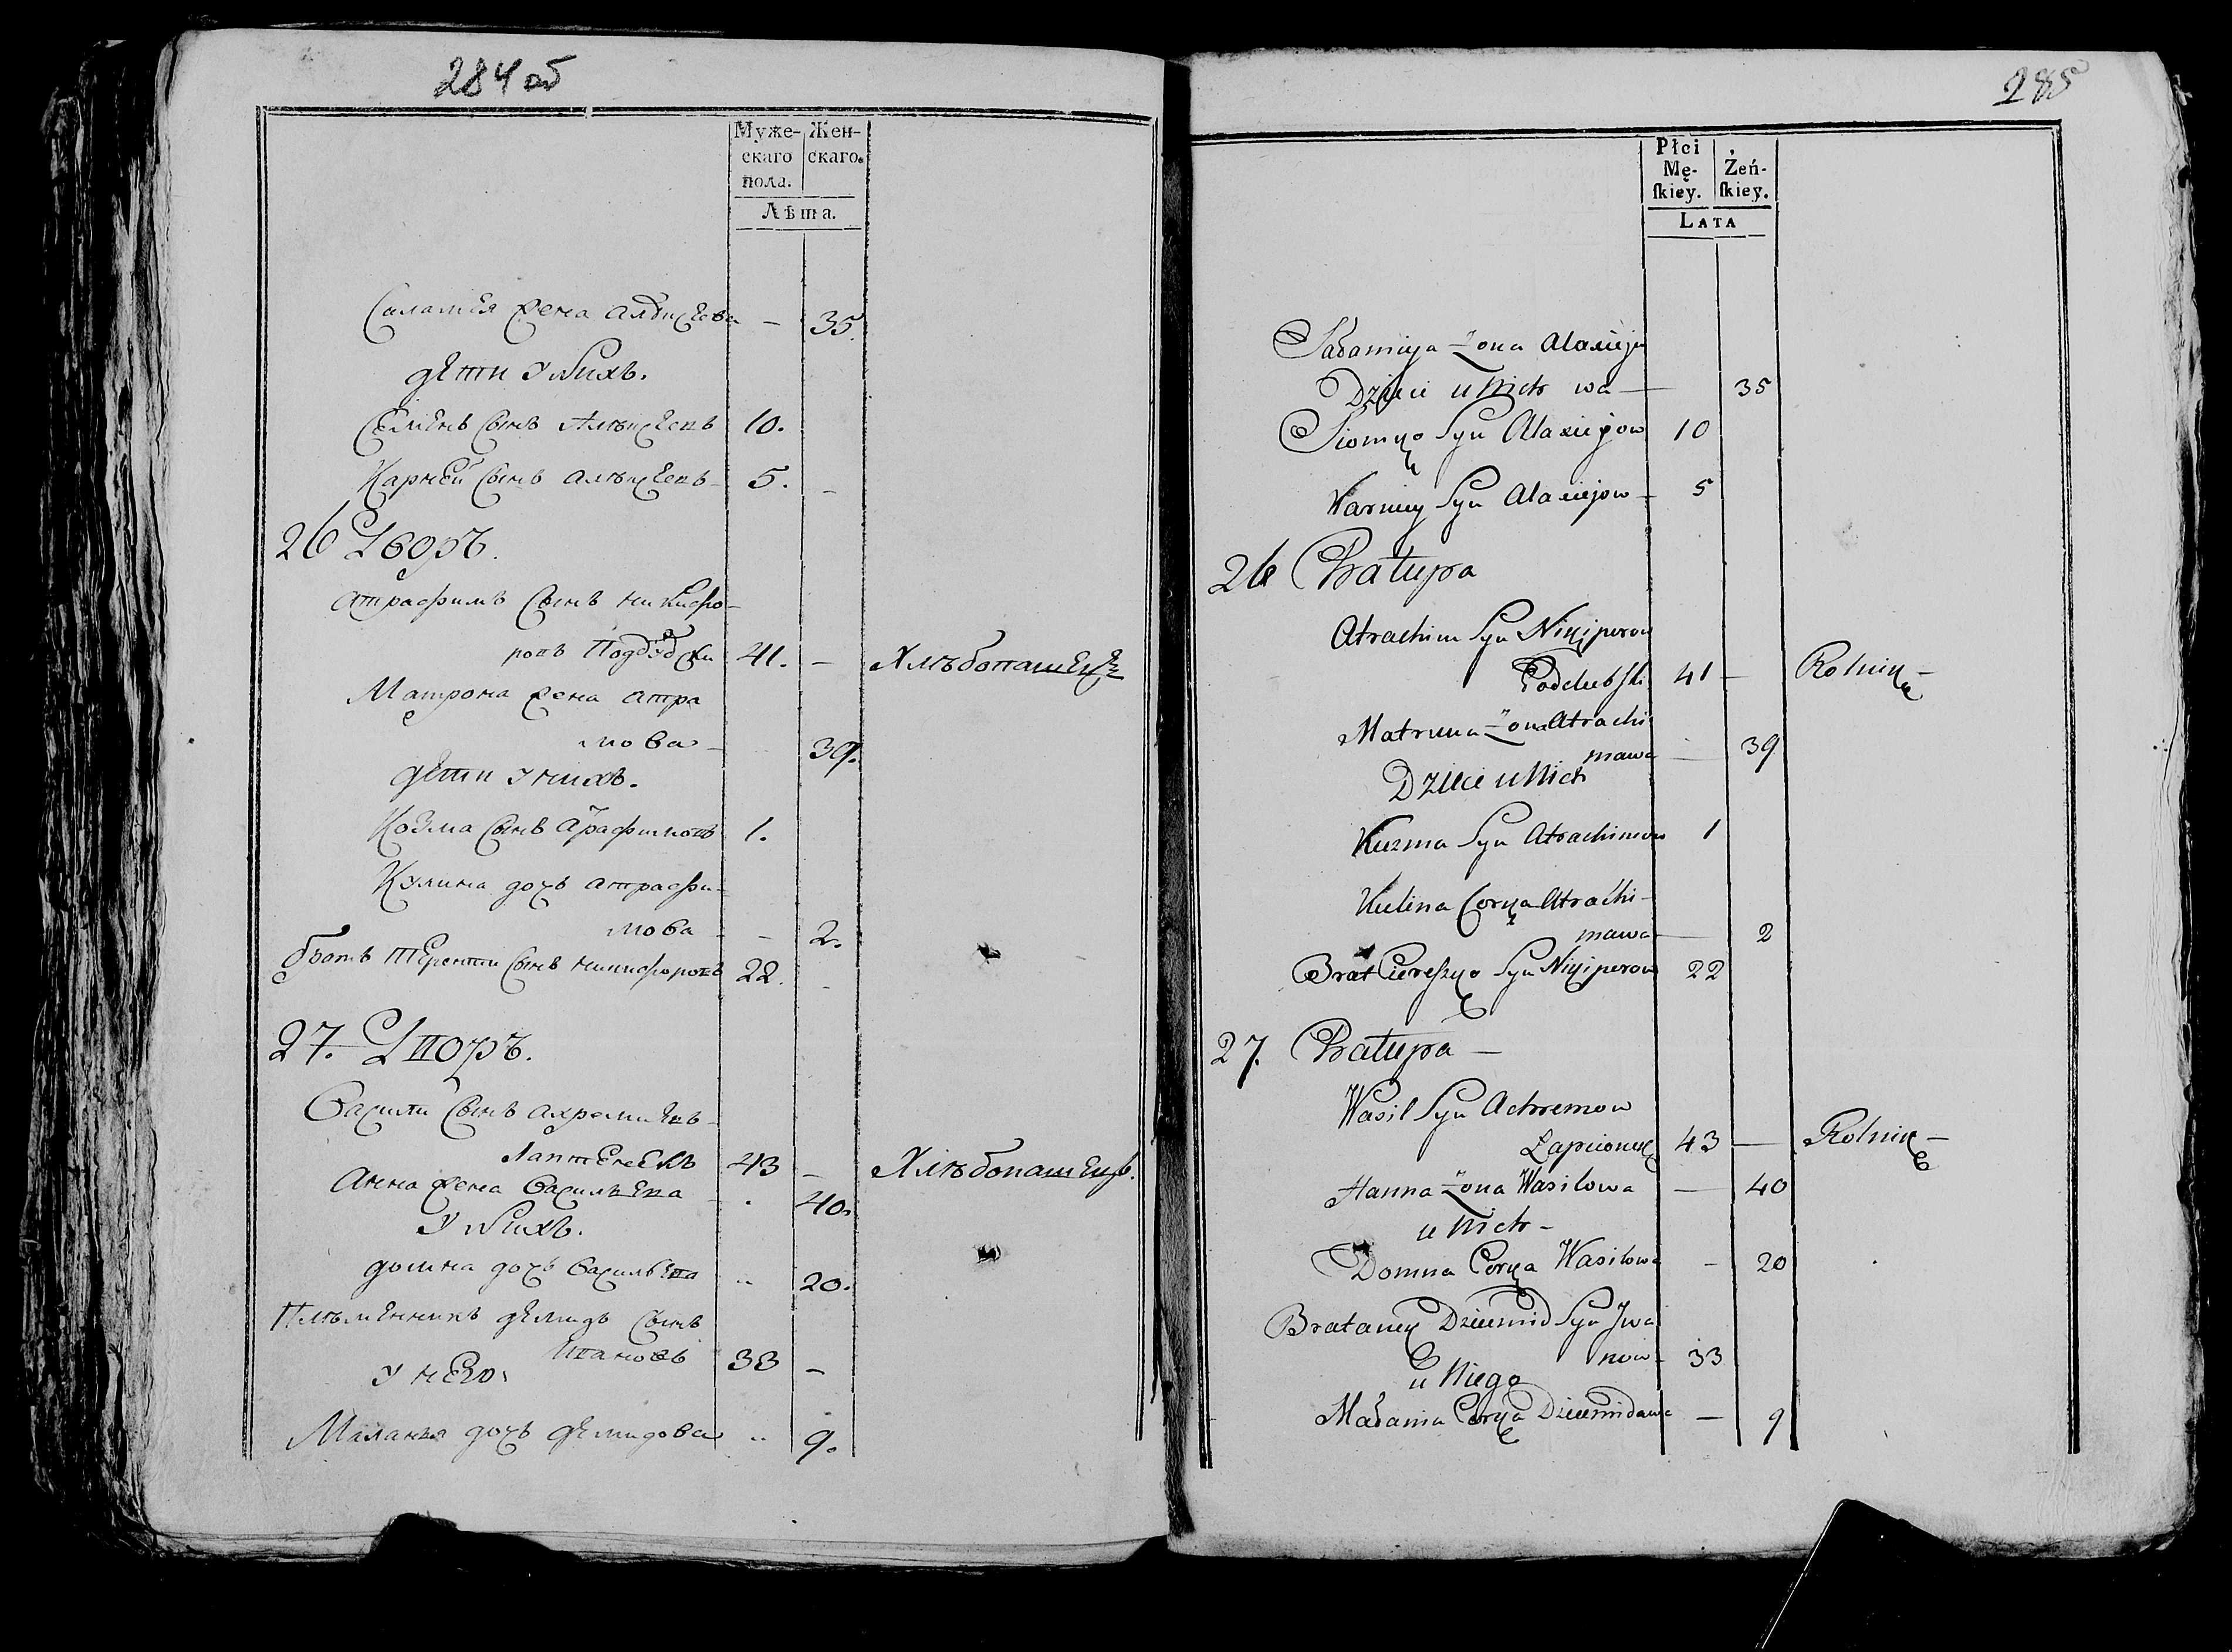 284 об
Муже-
скаго
пола.
Жен-
скаго.
Лѣта.
Саламея жена Алексеева — 35.
дети у них.
Семенъ сынъ Алексеевъ 10.
Карней сынъ Алексеевъ 5. —
26 Дворъ.
Атрафимъ сынъ Никифо-
ровъ 41. — Хлѣбопашецъ
Матрона жена Атра
мова 39.
дети у нихъ.
Козма сынъ Атрафимовъ 1.
Кулина дочь Атрафи-
мова — 2.
братъ Терентий сынъ Никифоровъ 22. —
27. Дворъ.
Василий сынъ Ахремиевъ
Лаптенекъ 43 — Хлѣбопашецъ.
Анна жена Васильева 40.
У них.
Домна дочь Васильева 20.
Племенникъ Демидъ сынъ
Ивановъ 33 —
у него.
Маланья дочь Демидова 9.
285
Płci
Mę-
skiey.
Żeń-
skiey.
LATA
Sałamieja Żona Alaxieje
Dzieci u Nich wa — 35
Siomko Syn Alaxiejow 10
Karniey Syn Alaxiejow — 5
26 Chałupa
Atrachim Syn Nikiperow
41 — Rolnik —
Matruna Żona Atrachi
mawa — 39
Dzieci u Nich
Kuzma Syn Atrachimow 1
Kulina Corka Atrachi-
mawa — 2
Brat Cereszko Syn Nikiperow 22
27. Chałupa —
Wasil Syn Achremow
Łapcionek 43 — Rolnik —
Hanna Żona Wasilowa — 40
u Nich —
Domna Corka Wasilowa — 20
Bratanek Dziemid Syn Jwa
now — 33
u Niego
Małania Corka Dziemidawa — 9